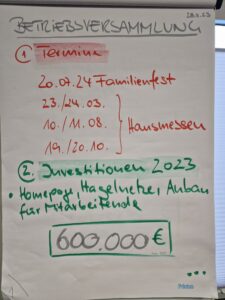 BETRIEBSVERSAMMLUNG
① Termine
20.07.24 Familienfest
23./24.03.
10./11.08. Hausmessen
19./20.10.
② Investitionen 2023
• Homepage, Hagelnetze, Anbau
für Mitarbeitende
600.000 €
...